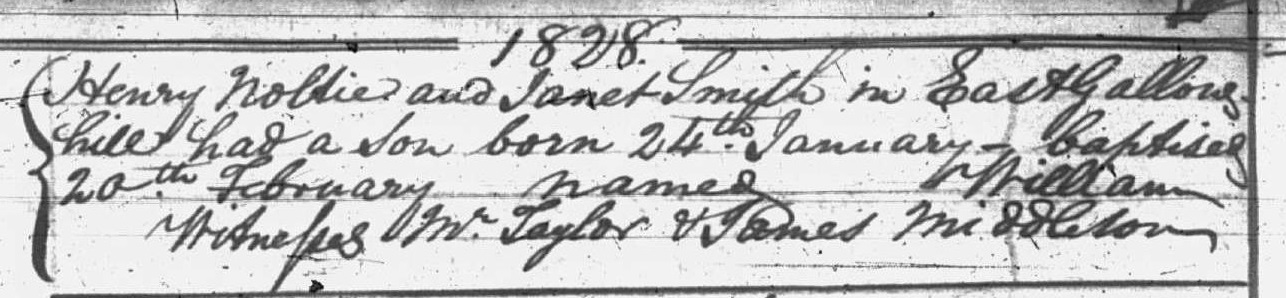 1828.
Henry Noblie and Janet Smith in East Gallow-
hill had a son born 24th. January - baptised
20.th February named William
Witnesses Mr. Taylor & James Middleton